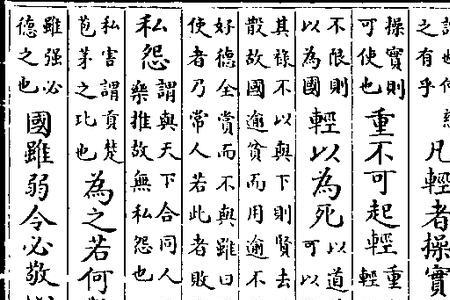 也何
之有乎
凡輕者操實
操實則
可使也
重不可起輕
重
輕
不限則
以為國
輕以為死
以道
可以
其祿不以與下則賢去
散故國逾貧而用逾不
好德全賞而不與雖曰
使者乃常人若此者敗
私怨
謂與天下合同人
樂推故無私怨也
私害謂貢楚
苞茅之比也
為之若何
雖强必
德之也
國雖弱令必敬